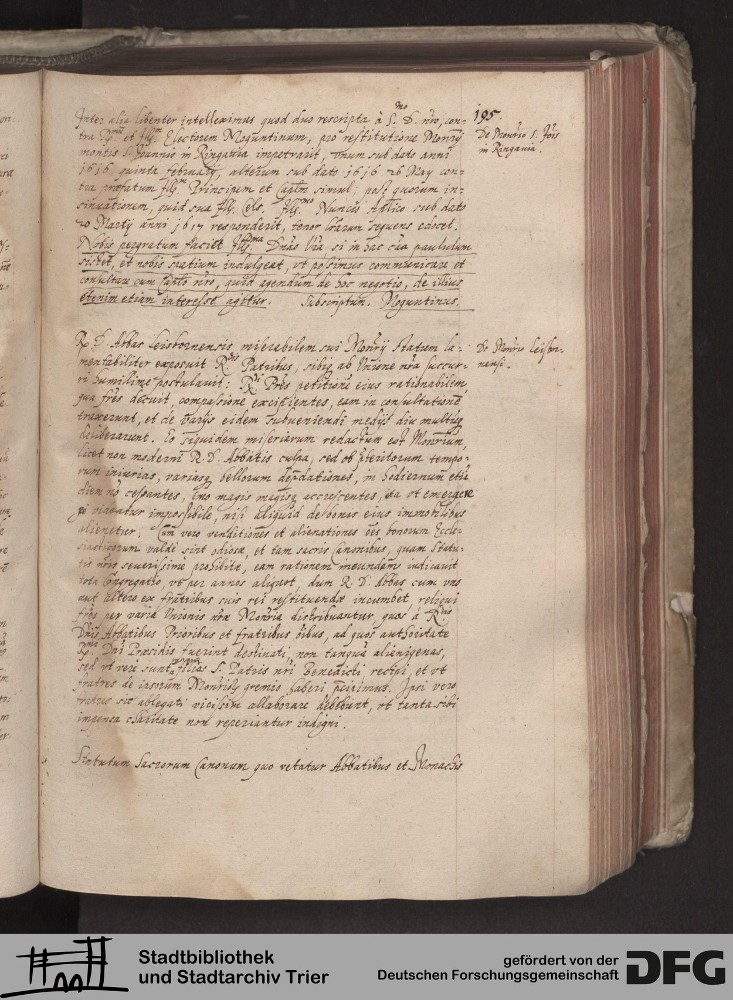 195.
Inter alia libenter intelleximus quod duo rescripta à S.mo D. nro, con-
tra R.mum et Ill.m Electorem Moguntinum, pro restitutione Monrij
montis S. Joannis in Ringauia impetrarit, vnum sub dato anni
1616 quinta february, alterum sub dato 1616 26 May con-
tra præfatum Ill.m Principem et Caplm simul, post quorum in-
sinuationem, quid sua Ill. Cels. Ill.mo Nuncio Aplico sub dato
20 Martij anni 1617 responderit, tenor lrarum sequens edocet.
Nobis pergratum faciet Ill.ma Dnáo Vra si in hac cáa paululum
sistet, et nobis spatium indulgeat, vt possimus communicare et
consultare cum Caplo nro, quid agendum de hoc negotio, de illius
etenim etiam interesse agitur. Subscriptum. Moguntinus.
De Monrio S. Jois
in Ringauia.
R. D. Abbas Leisbornensis miserabilem sui Monrij statum la-
mentabiliter exposuit R.dis Patribus, sibiq ab Vnione nra succur-
ri humilime postulauit: R.di Pres petitione eius rationabilem,
qua fres decuit, compassione excipientes, eam in consultatione
traxerunt, et de varijs eidem subueniendi medijs diu multumq
deliberarunt. Eo siquidem miseriarum redactum est Monrium,
licet non moderni R. D. Abbatis culpa, sed ob præteritorum tempo-
rum iniurias, variasq bellorum deprædationes, in hodiernum etiā
diem nō cessantes, imo magis magisq accrescentes, ita vt emergere
ei videatur impossibile, nisi aliquid de bonis eius immobilibus
alienetur. Cum vero venditiones et alienationes oēs bonorum Eccle-
siasticorum valdè sint odiosæ, et tam sacris Canonibus, quam Statu-
tis nris seuerissime prohibitæ, eam rationem ineundam iudicauit
tota Congregatio, vt per annos aliquot, dum R. D. Abbas cum vno
aut altero ex fratribus suis rei restituendæ incumbet, reliqui
fres per varia Vnionis nræ Monria distribuantur, quos à R.dis
Dnis Abbatibus Prioribus et fratribus oibus, ad quos authoritate
R.mi Dni Præsidis fuerint destinati, non tanquā alienigenas,
sed vt vere sunt, filios S. Patris nri Benedicti recipi, et vt
fratres de ipsorum Monriorum gremio haberi petimus. Ipsi vero
fratres sic ablegati vicissim allaborare debebunt, vt tanta sibi
impensa charitate non reperiantur indigni.
De Monrio Leisbor-
nensi.
Statutum Sacrorum Canonum quo vetatur Abbatibus et Monachis
Stadtbibliothek
und Stadtarchiv Trier
gefördert von der
Deutschen Forschungsgemeinschaft
DFG